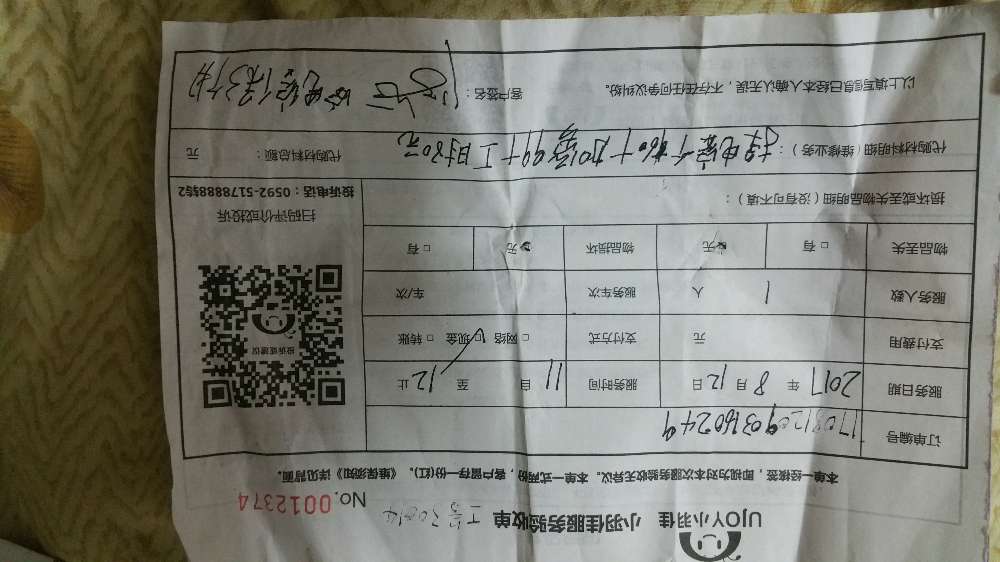 UJOY小羽佳 小羽佳服务验收单 工号
No. 0012374
本单一经核签，即视为对本次服务验收无异议。本单一式两份，客户留存一份(红)。《维保须知》详见背面。
订单编号
服务日期 2017 年 8 月 12 日 服务时间 11 自 至 12 止
支付费用 元 支付方式 □ 网络 □ 现金 □ 转账
服务人数 1 人 服务车次 车/次
物品丢失 □ 有 □ 无 物品损坏 □ 无 □ 有
投诉或建议
扫码评价或投诉
投诉电话：0592-5178888转2
损坏或丢失物品明细（没有可不填）：
代购材料明细（维修业务）：
代购材料总额： 元
以上填写信息已经本人确认无误，不存在任何争议纠纷。 客户签名：